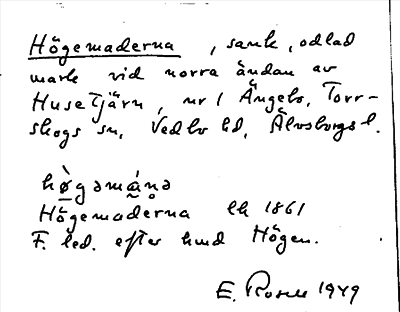 Högemaderna, sank, odlad
mark vid norra ändan av
Husetjärn, nr 1 Ängebo, Torr-
skogs sn, Vedbo hd, Älvsborgs l.
hø̀gəmá̱nə
Högemaderna lk 1861
F. led. efter hmd Högen.
E. Rosell 1949